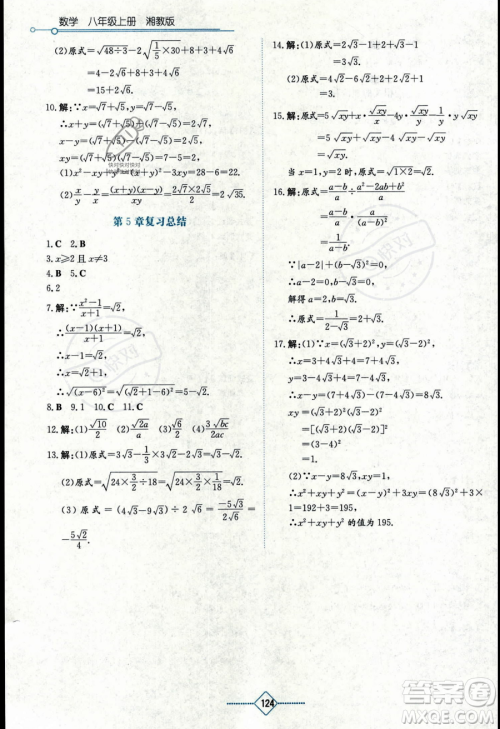 数学 八年级上册 湘教版
(2)原式=√(48÷3)-2√(1/5×30)+8+3-4√6
=4-2√6+8+3-4√6
=15-6√6.
10.解:∵x=√7+√5,y=√7-√5,
∴x+y=(√7+√5)+(√7-√5)=2√7,
x-y=(√7+√5)-(√7-√5)=2√5.
(1)x²-xy+y²=(x+y)²-3xy=28-6=22.
(2)x/y-y/x=(x+y)(x-y)/xy=2√7×2√5/2=2√35.
第5章复习总结
1.C 2.B
3.x≥2且x≠3
4.B 5.C
6.2
7.解:∵(x²-1)/(x+1)=√2,
∴(x-1)(x+1)/(x+1)=√2,
∴x-1=√2,
∴x=√2+1,
∴√(x-6)²=√(√2+1-6)²=5-√2.
8.B 9.1 10.C 11.C
12.解:(1)√10/2 (2)√2a/a (3)3√bc/2ac
13.解:(1)原式=3√3-√3=2√3.
(2)原式=√(24×3/2÷18)=√(24×3/2×1/18)=√2.
(3)原式=(4√3-9√3)÷2√6=-5√3/2√6=
-5√2/4.
14.解:(1)原式=2√3-1+√3=3√3-1.
(2)原式=4√2-√2+2√2=5√2.
15.解:原式=5√xy+x·√xy/x-4/y·√xy/y·y√xy
=5√xy+√xy-4x
=6√xy-4x.
当x=1,y=2时,原式=6√(1×2)-4×1=6√2-4.
16.解:原式=(a-b)/a÷(a²-2ab+b²)/a
=(a-b)/a·a/(a-b)²
=1/(a-b).
∵|a-2|+(b-√3)²=0,
∴a-2=0,b-√3=0,
解得a=2,b=√3.
∴原式=1/(2-√3)=2+√3.
17.解:(1)∵x=(√3+2)²,y=(√3-2)²,
∴x=3+4√3+4=7+4√3,
y=3-4√3+4=7-4√3,
xy=(√3+2)²(√3-2)²
=[(√3)²-2²]²
=1.
(2)∵x-y=8√3,xy=1,
∴x²+y²+xy=(x-y)²+3xy=(8√3)²+3×
1=192+3=195,
∴x²+y²+xy的值为195.
124
答案圈
MXQE.COM